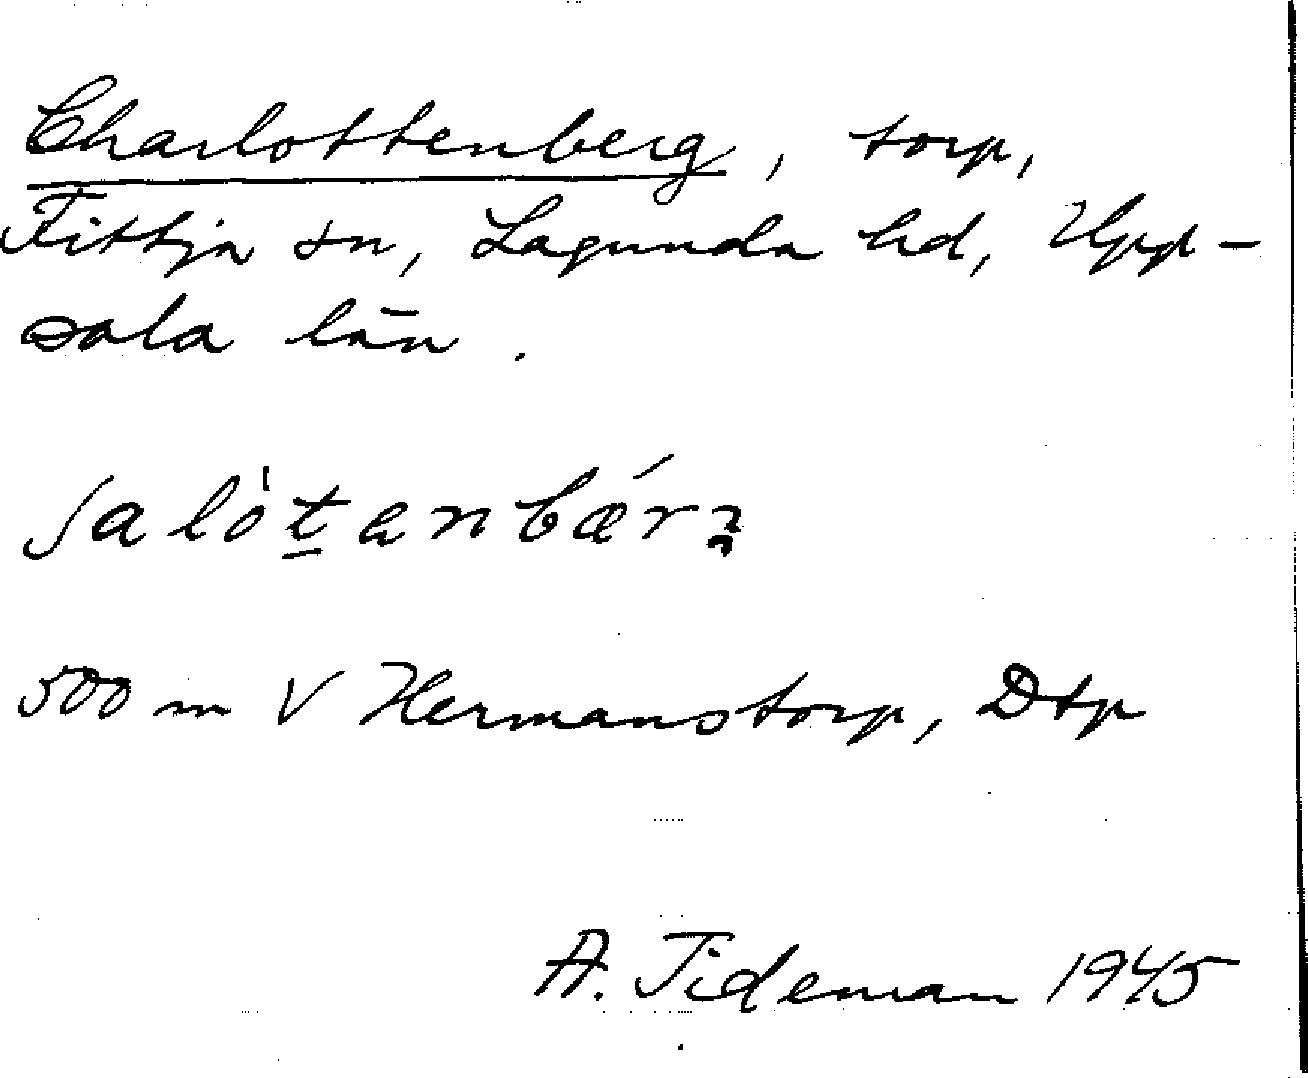 Charlottenberg, torp,
Fittja sn, Lagunda hd, Upp-
sala län.
ʃalò́t̲anbǽrꝛ
500 m V Hermanstorp, Dtp
A. Tideman 1945